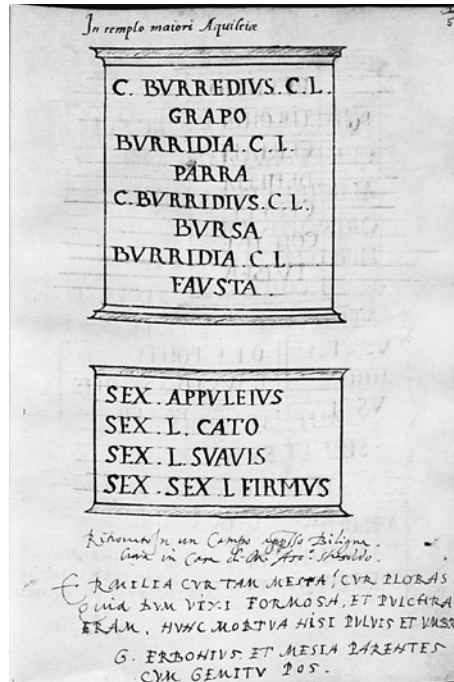 In templo maiori Aquileiæ
C. BVRREDIVS. C. L.
GRAPO
BVRRIDIA. C. L.
PARRA
C. BVRRIDIVS. C. L.
BVRSA
BVRRIDIA. C. L.
FAVSTA.
SEX. APPVLEIVS
SEX. L. CATO
SEX. L. SVAVIS
SEX. SEX. L FIRMVS
Ritrovato in un Campo Biligne
in Casa di
ERMILIA CVR TAM MESTA? CVR PLORAS
quia DVM VIXI FORMOSA, ET PVLCHRA
ERAM. NVNC MORTVA NISI PVLVIS ET VMBR
G. ERBONIVS. ET MESIA PARENTES
CVM GEMITV POS.